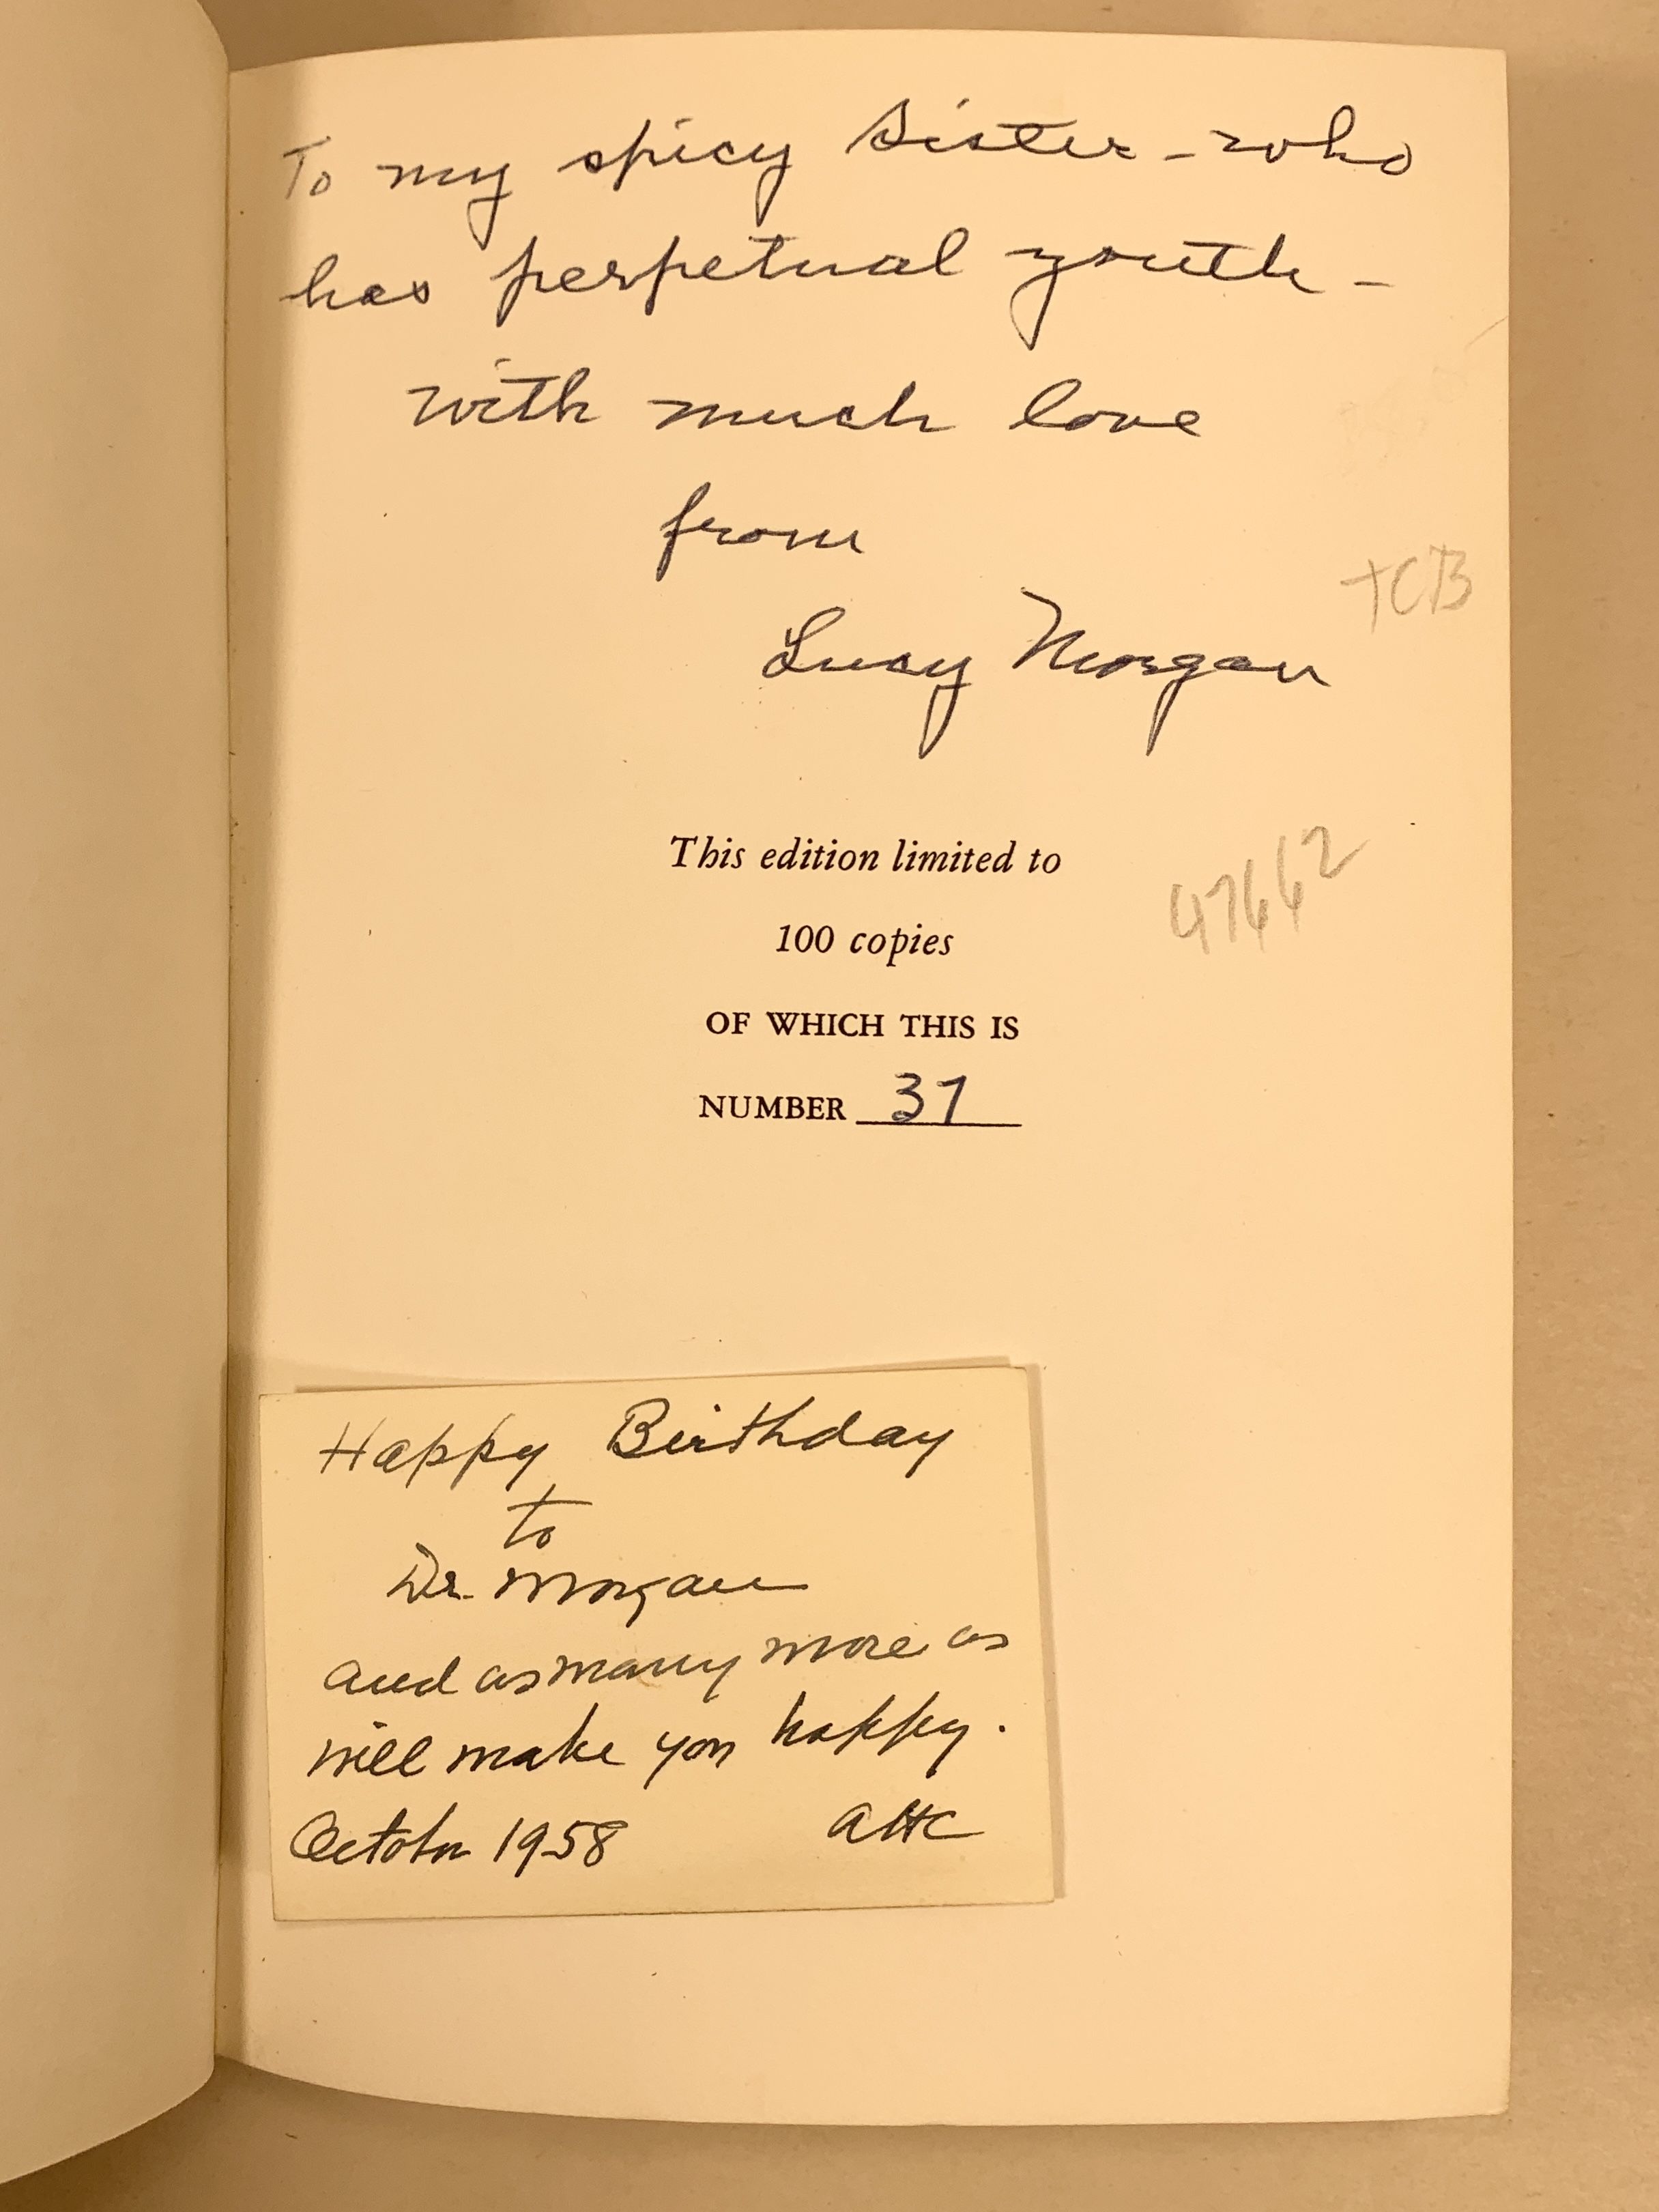 To my spicy Sister - who
has perpetual youth -
with much love
from
Lucy Morgan
TCB
This edition limited to
100 copies
47662
OF WHICH THIS IS
NUMBER 37
Happy Birthday
to
Dr. Morgan
and as many more as
will make you happy.
October 1958 AHC